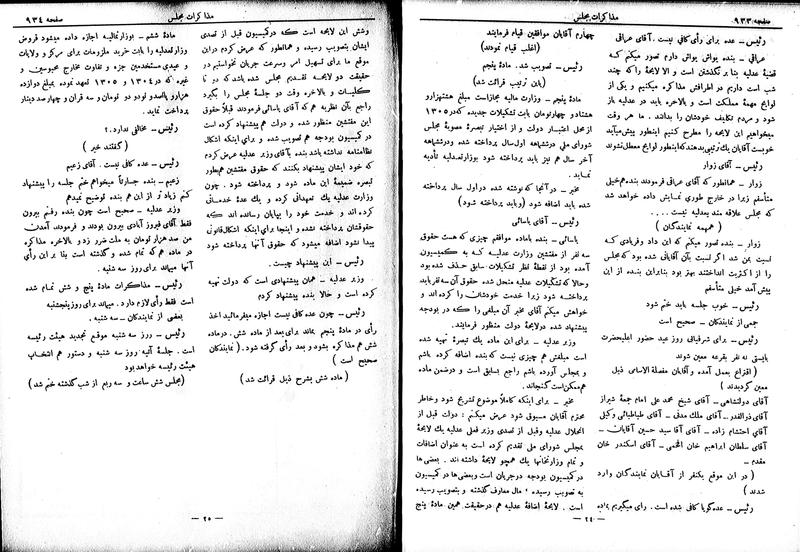 صفحه ۹۳۳
مذاکرات مجلس
رئیس ــ عده برای رأی کافی نیست. آقای عراقی
عراقی ــ بنده یواش یواش دارم تصور میکنم که
قضیهٔ عدلیه بنا بر نگذشتن است و الا لایحهٔ را که چند
شب است داریم در اطرافش مذاکره میکنیم و یکی از
لوایح مهمهٔ مملکت است و بالاخره باید در عدلیه باز
شود و مردم تکلیف خودشان را بدانند. ما هر وقت
میخواهیم این لایحه را مطرح کنیم اینطور پیش میآید
خوبست آقایان یک ترتیبی بدهند که اینطور لوایح معطل نشوند
رئیس ــ آقای زوار
زوار ــ همانطور که آقای عراقی فرمودند بنده هم خیلی
متأسفم زیرا در خارج طوری نمایش داده خواهد شد
که مجلس علاقه مند بعدلیه نیست ....
( همهمه نمایندگان )
زوار ــ بنده تصور میکنم که این داد و فریادی که
نسبت بمن شد اگر نسبت بآن آقایانی شده بود که مجلس
را از اکثریت انداختند بهتر بود بنابراین بنده از این
پیش آمد خیلی متأسفم
رئیس ــ خوب جلسه باید ختم شود
جمعی از نمایندگان ــ صحیح است
رئیس ــ برای شرفیابی روز عید حضور اعلیحضرت
بایستی نه نفر بقرعه معین شوند
( اقتراع بعمل آمده و آقایان مفصلة الاسامی ذیل
معین گردیدند )
آقای دولتشاهی ــ آقای شیخ محمد علی امام جمعهٔ شیراز
آقای ذوالقدر ــ آقای ملک مدنی ــ آقای طباطبائی وکیلی
آقای احتشام زاده ــ آقای آقا سید حسین آقایان ــ
آقای سلطان ابراهیم خان افخمی ــ آقای اسکندر خان
مقدم ــ
( در این موقع یکنفر از آقایان نمایندگان وارد
شدند )
رئیس ــ عده گویا کافی شده است. رأی میگیریم بماده
چهارم آقایان موافقین قیام فرمایند
(اغلب قیام نمودند)
رئیس ــ تصویب شد. مادهٔ پنجم
(باین ترتیب قرائت شد)
مادهٔ پنجم ــ وزارت مالیه مجاز است مبلغ هشتهزار و
هشتاد و چهار تومان بابت تشکیلات جدیده که در ۱۳۰۵
از محل اعتبار دولت و از اختیار تبصرهٔ مصوبهٔ مجلس
شورای ملی در ششماهه اول سال پرداخته شده و در ششماهه
آخر سال هم نیز باید پرداخته شود بوزارتعدلیه تأدیه
نماید.
مخبر ــ در آنجا که نوشته شده در اول سال پرداخته
شده باید اضافه شود (و باید پرداخته شود)
رئیس ــ آقای یاسائی
یاسائی ــ بنده با ماده موافقم چیزی که هست حقوق
سه نفر از مفتشین وزارت عدلیه که به کمیسیون
آمده بود از نقطهٔ نظر تشکیلات سابق حذف شده بود
و حالا که تشکیلات عدلیه منحل شده حقوق آن سه نفر باید
پرداخته شود زیرا خدمت خودشان را کرده اند و
خواهش میکنم آقای مخبر آن مبلغی را که در بودجه
پیشنهاد شده در لایحهٔ دولت منظور فرمایند.
وزیر عدلیه ــ برای این ماده یک تبصرهٔ تهیه شده
است مبلغش هم چیزی نیست که بنده اضافه کرده باشم
و بمجلس آورده باشم راجع بسابق است و در ضمن ماده
هم ممکن است گنجاند.
مخبر ــ برای اینکه کاملاً موضوع تشریح شود و خاطر
محترم آقایان مسبوق شود عرض میکنم : دولت قبل از
انحلال عدلیه وقبل از تصدی وزیر فعلی عدلیه یک لایحهٔ
بمجلس شورای ملی تقدیم کرده است به عنوان اضافات
و تمام وزارتخانها یک همچو لایحهٔ داشته اند. بعضی‌ها
این لایحه در کمیسیون بودجه در جریان است و بعضی‌ها در کمیسیون
به تصویب رسیده : مال معارف گذشته و بتصویب رسیده
است. لایحهٔ اضافهٔ عدلیه هم در حقیقت همین مادهٔ پنج
ــ ۲٤ ــ
مذاکرات مجلس
صفحه ۹۳٤
وشش این لایحه است که در کمیسیون قبل از تصدی
ایشان بتصویب رسیده و همانطور که عرض کردم در این
موقع ما برای تسهیل امر و سرعت جریان نخواستیم در
حقیقت دو لایحه تقدیم مجلس شده باشد که دو تا
کلیات و بالاخره وقت دو جلسهٔ مجلس را بگیرد
راجع بآن نظریه هم که آقای یاسائی فرمودند قبلاً حقوق
این مفتشین منظور شده و دولت هم پیشنهاد کرده است
در کمیسیون بودجه هم تصویب شده و برای اینکه اشکال
نظامنامه نداشته باشد بنده بآقای وزیر عدلیه عرض کردم
که خود ایشان پیشنهاد بکنند که حقوق مفتشین هم بطور
تبصره ضمیمهٔ این ماده شود و پرداخته شود. چون
وزارت عدلیه یک تعهداتی کرده و یک عدهٔ خدماتی
کرده اند و خدمت خود را بپایان رسانده اند که
حقوقشان پرداخته نشده و اینجا برای اینکه اشکال قانونی
پیدا نشود اضافه میشود که حقوق آنها پرداخته شود
رئیس ــ این پیشنهاد چیست.
وزیر عدلیه ــ همان پیشنهادی است که دولت تهیه
کرده است و حالا بنده پیشنهاد کردم
رئیس ــ چون عده کافی نیست اجازه میفرمائید اخذ
رأی در مادهٔ پنجم بماند برای بعد از ماده شش. در ماده
شش هم مذاکره بشود و بعد رأی گرفته شود. ( نمایندگان
صحیح است )
(ماده شش بشرح ذیل قرائت شد )
مادهٔ ششم ــ بوزارتمالیه اجازه داده میشود قروض
وزارتعدلیه را بابت خرید ملزومات برای مرکز و ولایات
و عیدی مستخدمین جزء و تفاوت مخارج محبوسین و
غیره که در ۱۳۰٤ و ۱۳۰۵ تعهد نموده بمبلغ دوازده
هزار و پانصد و نود و دو تومان و سه قران و چهار صد دینار
پرداخت نماید.
رئیس ــ مخالفی ندارد.؟
( گفتند خیر )
رئیس ــ عده کافی نیست. آقای زعیم
زعیم ــ بنده جسارتاً میخواهم ختم جلسه را پیشنهاد
کنم زیاد تر از این هم بنده توضیح نمیدهم
وزیر عدلیه ــ صحیح است چون بنده رفتم بیرون
فقط آقای فیروز آبادی بیرون بودند و فرمودند آمدن
من صد هزار تومان به ملت ضرر زد و بالاخره مذاکره
در ماده هم که تمام شده و گذشته است بنا بر این رأی
آنها میماند برای روز سه شنبه.
رئیس ــ مذاکرات مادهٔ پنج و شش تمام شده
است فقط رأی لازم دارد. میماند برای روز پنجشنبه
بعضی از نمایندگان ــ سه شنبه
رئیس ــ روز سه شنبه موقع تجدید هیئت رئیسه
است. جلسهٔ آتیه روز سه شنبه و دستور هم انتخاب
هیئت رئیسه خواهد بود
(مجلس شش ساعت و سه ربع از شب گذشته ختم شد )
ــ ۲۵ ــ